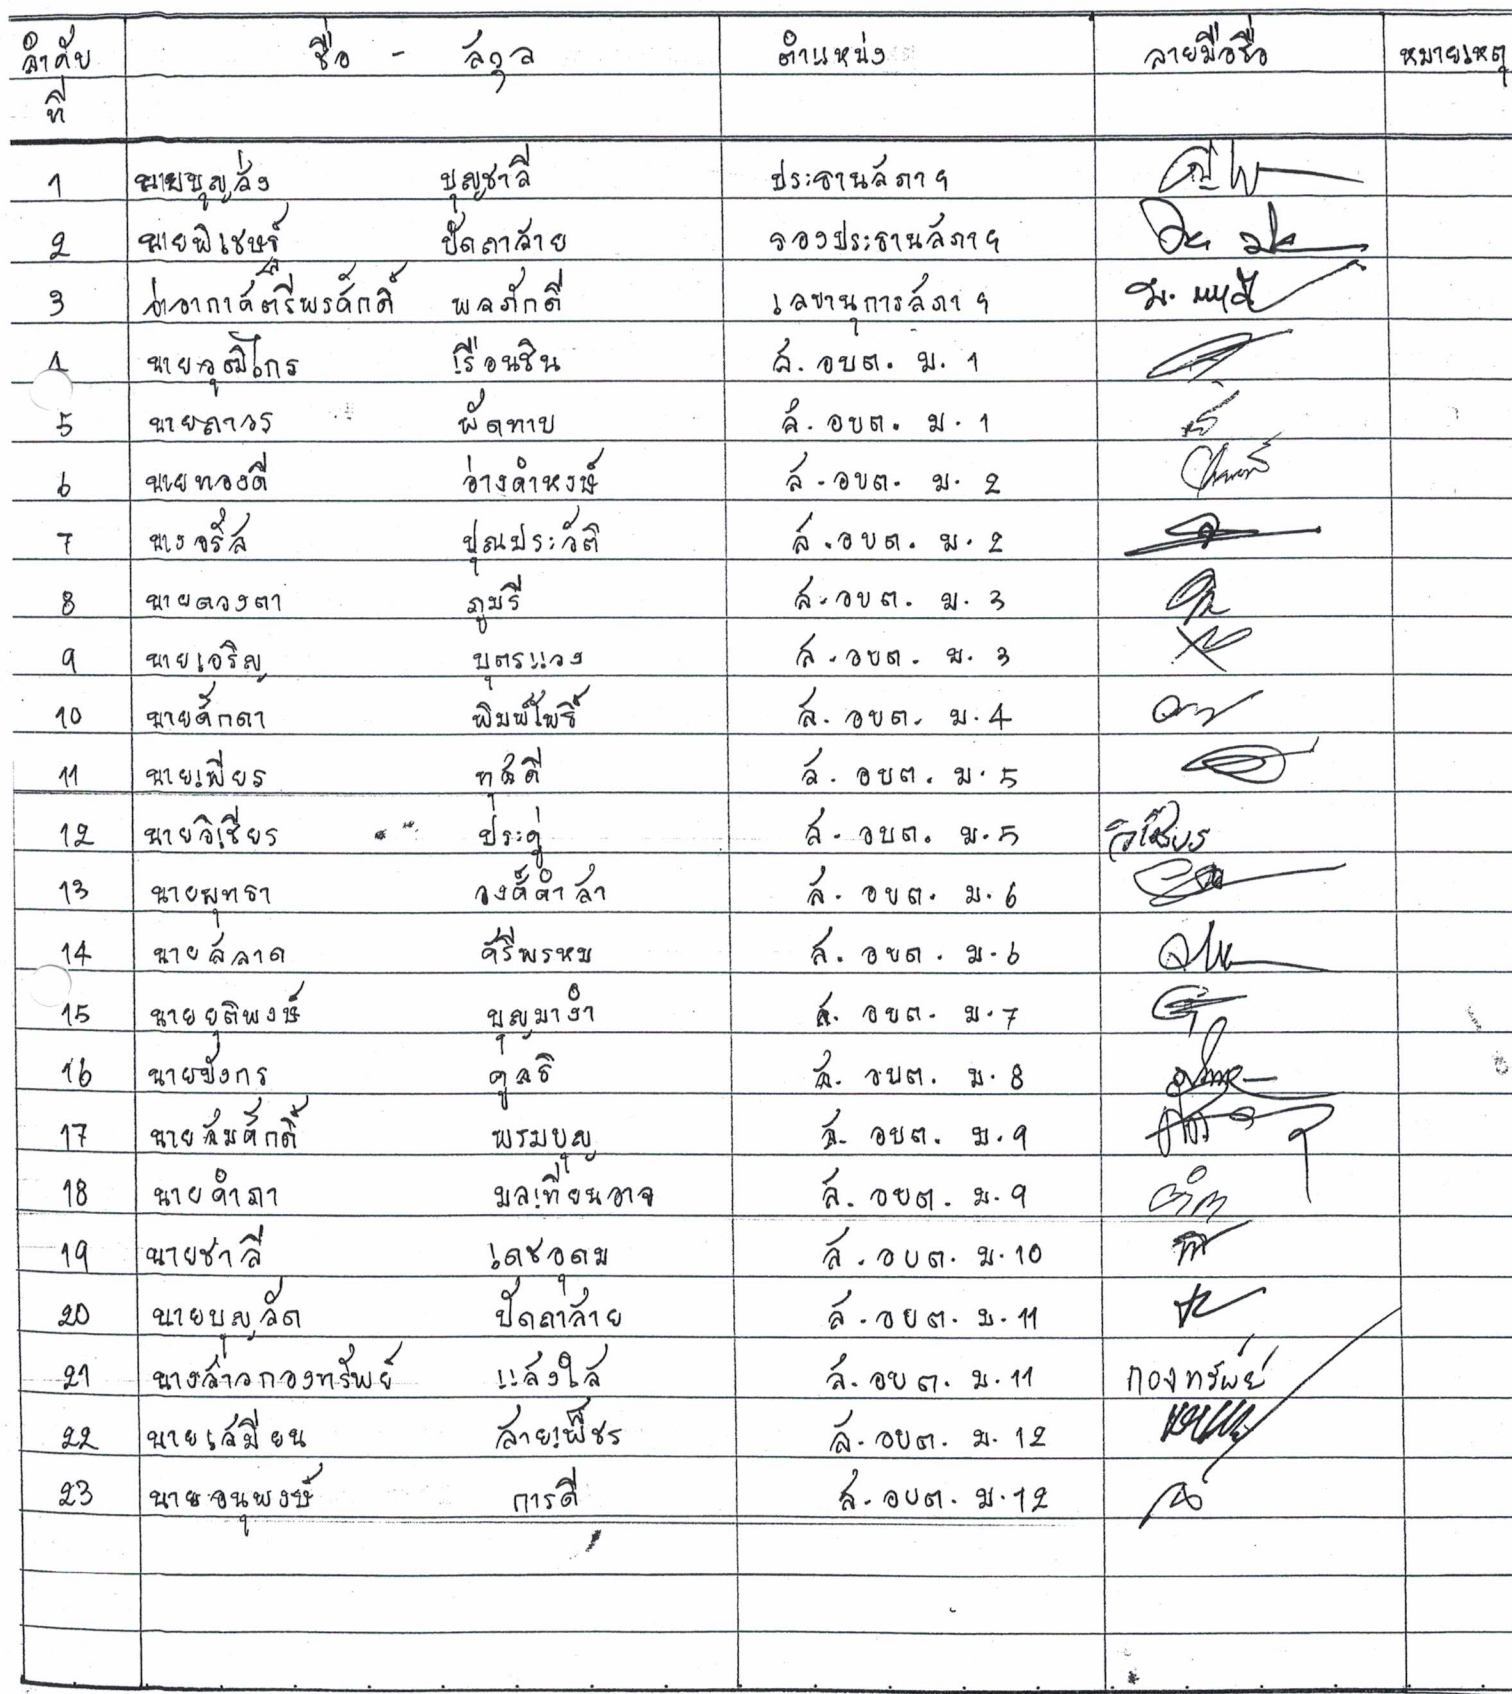 ลำดับ ชื่อ - สกุล ตำแหน่ง ลายมือชื่อ หมายเหตุ
ที่
1 นายบุญส่ง ปุญชาลี ประธานสภาฯ
2 นายพิเชษฐ์ ปัดถาสาย รองประธานสภาฯ
3 ว่าอากาศตรีพรศักดิ์ พลภักดี เลขานุการสภาฯ
4 นายวุฒิไกร เรือนชิน ส. อบต. ม. 1
5 นายถาวร ผัดทาบ ส. อบต. ม. 1
6 นายทองดี อ่างคำหงษ์ ส. อบต. ม. 2
7 นางจรัส ปุณประวัติ ส. อบต. ม. 2
8 นายดวงตา ภูมรี ส. อบต. ม. 3
9 นายเจริญ บุตรแวง ส. อบต. ม. 3
10 นายศักดา พิมพ์โพธิ์ ส. อบต. ม. 4
11 นายเพียร ทุสดี ส. อบต. ม. 5
12 นายวิเชียร ประดู่ ส. อบต. ม. 5 วิเชียร
13 นายพุทธา วงศ์คำสา ส. อบต. ม. 6
14 นายสลาด ศรีพรหม ส. อบต. ม. 6
15 นายยุติพงษ์ บุญมางำ ส. อบต. ม. 7
16 นายบังกร ศูลธิ ส. อบต. ม. 8
17 นายสมศักดิ์ พรมบุญ ส. อบต. ม. 9
18 นายคำภา มลเทียนอาจ ส. อบต. ม. 9
19 นายชาลี เดชอุดม ส. อบต. ม. 10
20 นายบุญจัด ปัดถาสาย ส. อบต. ม. 11
21 นางสาวกองทรัพย์ แสงใส ส. อบต. ม. 11 กองทรัพย์
22 นายเสมียน สายเพ็ชร ส. อบต. ม. 12
23 นายอนุพงษ์ การดี ส. อบต. ม. 12